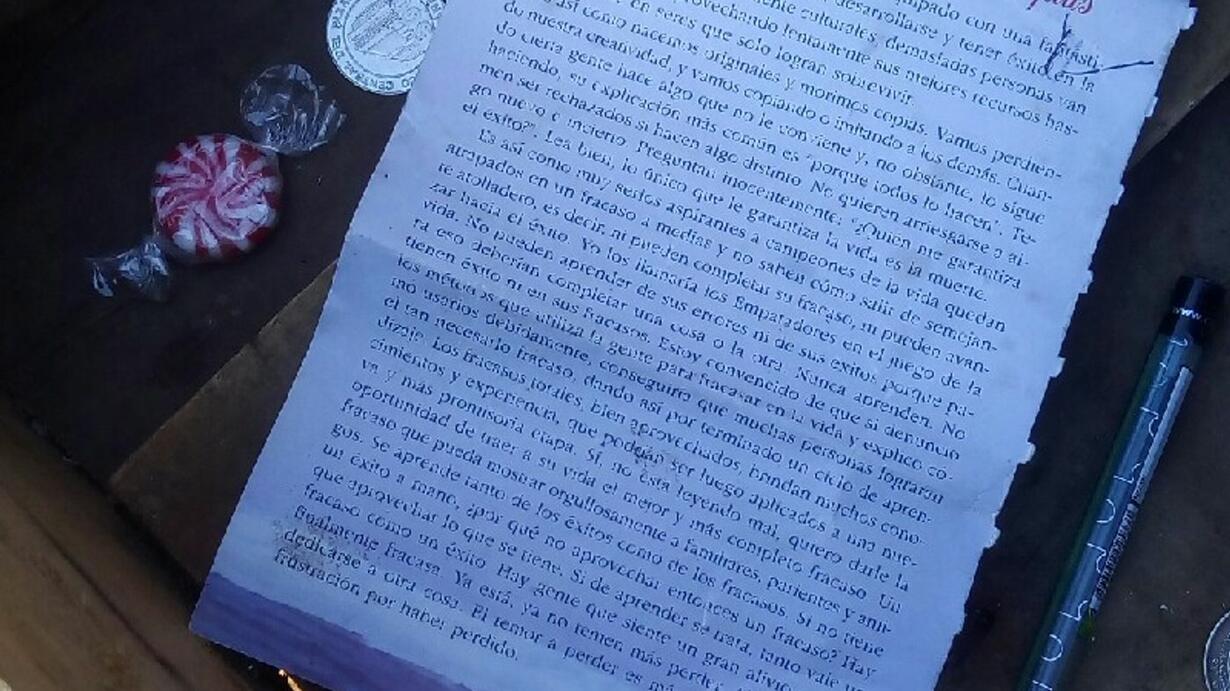 mpado con una fantásti-
desarrollarse y tener éxito en la
mente culturales, demasiadas personas van
aprovechando lentamente sus mejores recursos has-
en seres que solo logran sobrevivir.
así como nacemos originales y morimos copias. Vamos perdien-
do nuestra creatividad, y vamos copiando o imitando a los demás. Cuan-
do cierta gente hace algo que no le conviene y, no obstante, lo sigue
haciendo, su explicación más común es "porque todos lo hacen". Te-
men ser rechazados si hacen algo distinto. No quieren arriesgarse a al-
go nuevo e incierto. Preguntan inocentemente: "¿Quién me garantiza
el éxito?". Lea bien, lo único que le garantiza la vida es la muerte.
Es así como muy serios aspirantes a campeones de la vida quedan
atrapados en un fracaso a medias y no saben cómo salir de semejan-
te atolladero, es decir, ni pueden completar su fracaso, ni pueden avan-
zar hacia el éxito. Yo los llamaría los Empatadores en el juego de la
vida. No pueden aprender de sus errores ni de sus éxitos porque pa-
ra eso deberían completar una cosa o la otra. Nunca aprenden. No
tienen éxito ni en sus fracasos. Estoy convencido de que si denuncio
los métodos que utiliza la gente para fracasar en la vida y explico có-
mo usarlos debidamente, conseguiré que muchas personas lograran
el tan necesario fracaso, dando así por terminado un ciclo de apren-
dizaje. Los fracasos totales, bien aprovechados, brindan muchos cono-
cimientos y experiencia, que podrán ser luego aplicados a una nue-
va y más promisoria etapa. Sí, no está leyendo mal, quiero darle la
oportunidad de traer a su vida el mejor y más completo fracaso. Un
fracaso que pueda mostrar orgullosamente a familiares, parientes y ami-
gos. Se aprende tanto de los éxitos como de los fracasos. Si no tiene
un éxito a mano, ¿por qué no aprovechar entonces un fracaso? Hay
que aprovechar lo que se tiene. Si de aprender se trata, tanto vale un
fracaso como un éxito. Hay gente que siente un gran alivio
finalmente fracasa. Ya está, ya no temen más perder,
dedicarse a otra cosa. El temor a perder es má
frustración por haber perdido.